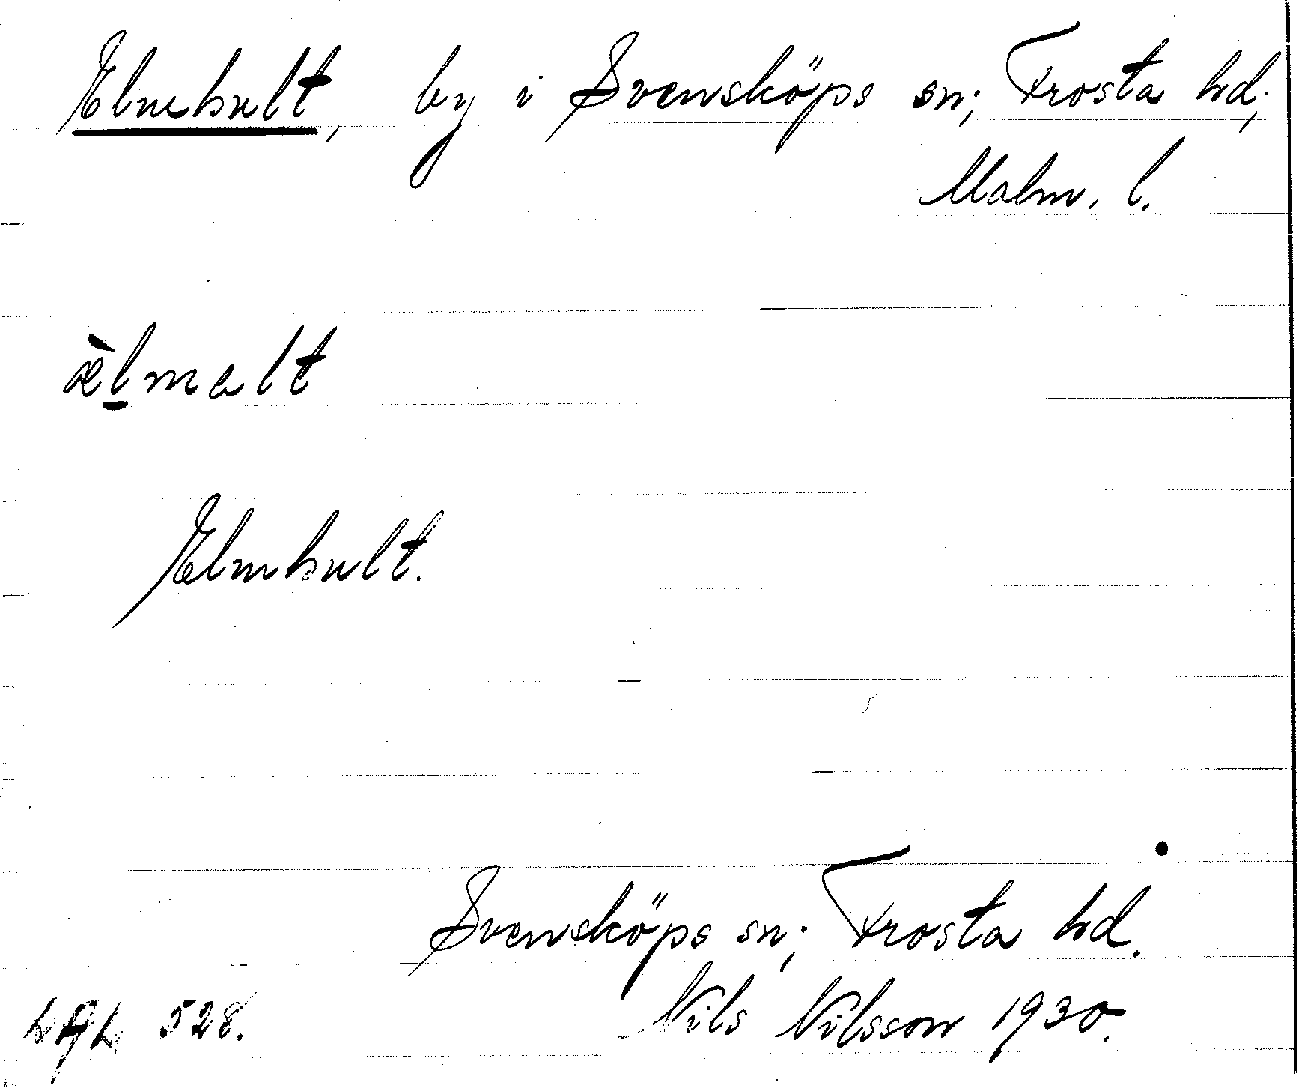 Elmhult, by i Svensköps sn; Frosta hd;
Malm. l.
æ̀l̠malt
Elmhult.
Svensköps sn; Frosta hd.
528. Nils Nilsson 1930.